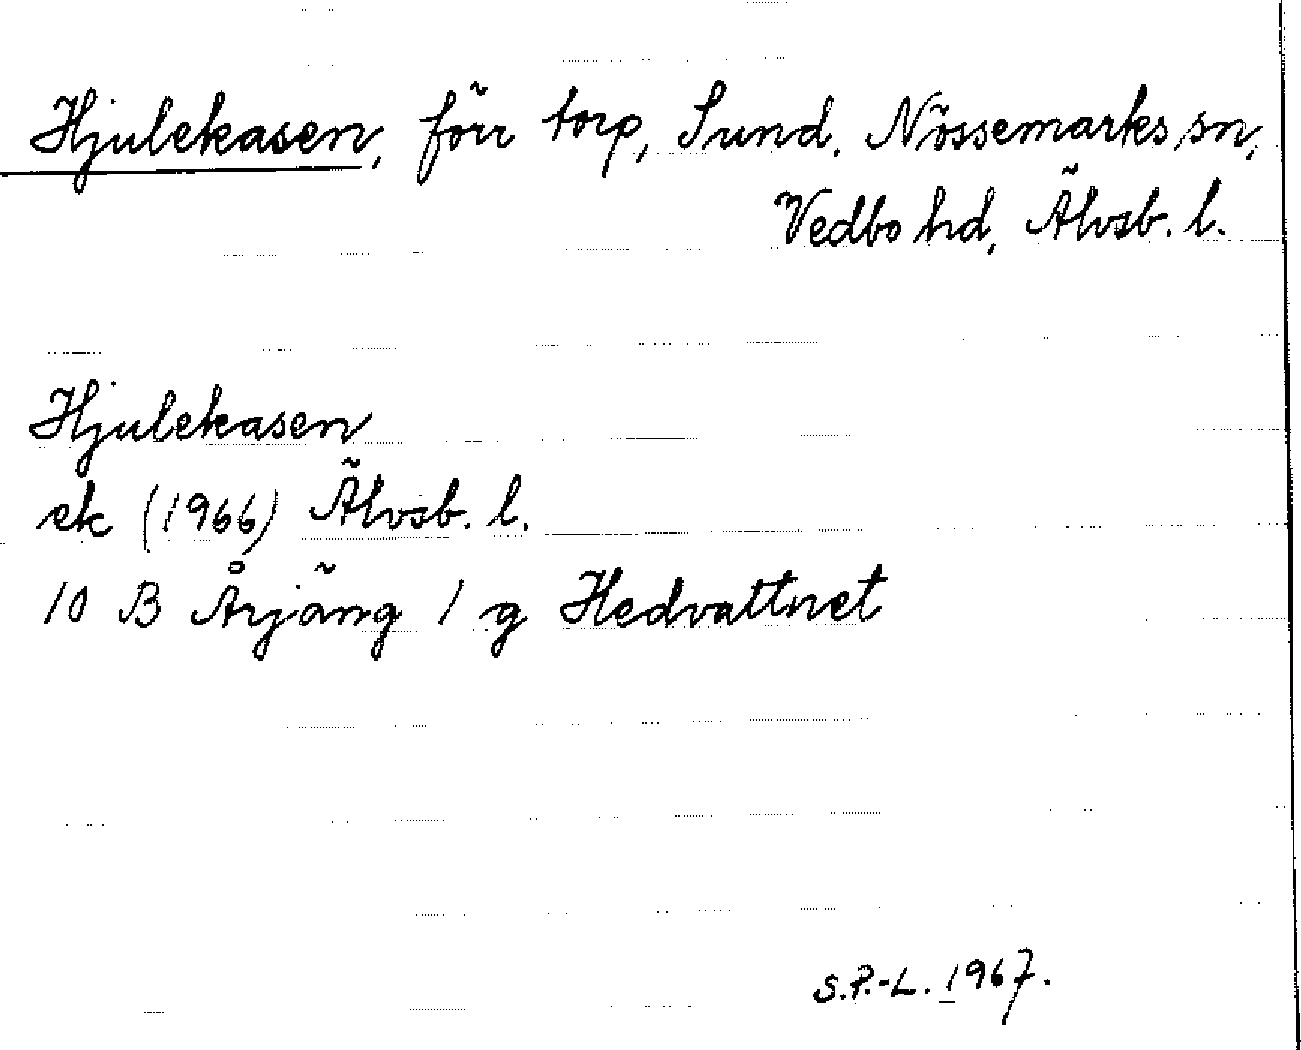 Hjulekasen, förr torp, Sund. Nössemarks sn,
Vedbo hd, Älvsb. l.
Hjulekasen
ek (1966) Älvsb. l.
10 B Årjäng 1 g Hedvattnet
S.P.-L. 1967.